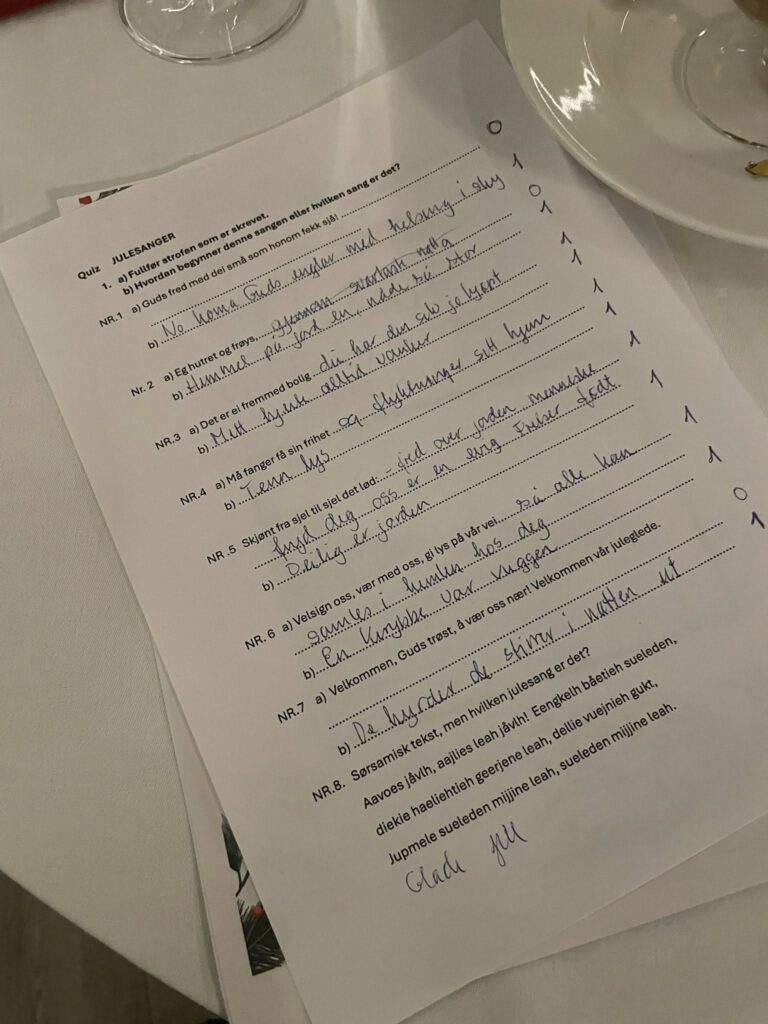 Quiz JULESANGER
1. a) Fullfør strofen som er skrevet.
b) Hvordan begynner denne sangen eller hvilken sang er det?
NR.1 a) Guds fred med dei små som honom fekk sjå! 0
b) No koma Guds englar med helsing i sky 1
Nr. 2 a) Eg hutret og frøys, gjennom svartaste natta 0
b) Himmel på jord en nåde så stor 1
NR.3 a) Det er ei fremmed bolig du har den selv jo kjøpt 1
b) Mitt hjerte alltid vanker 1
NR.4 a) Må fanger få sin frihet og flyktninger sitt hjem 1
b) Tenn lys 1
NR.5 Skjønt fra sjel til sjel det lød: - fred over jorden menneske
fryd deg oss er en evig Frelser født 1
b) Deilig er jorden 1
NR.6 a) Velsign oss, vær med oss, gi lys på vår vei så alle kan
samles i himlen hos deg 1
b) En krybbe var vuggen 1
NR.7 a) Velkommen, Guds trøst, å vær oss nær! Velkommen vår juleglede.
0
b) De hyrder de stirrer i natten ut 1
NR.8. Sørsamisk tekst, men hvilken julesang er det?
Aavoes jåvlh, aajlies leah jåvlh! Eengkelh båetieh sueleden,
diekie haeliehtieh geerjene leah, dellie vuejnieh gukt,
Jupmele sueleden mijjine leah, sueleden mijjine leah.
Glade jul